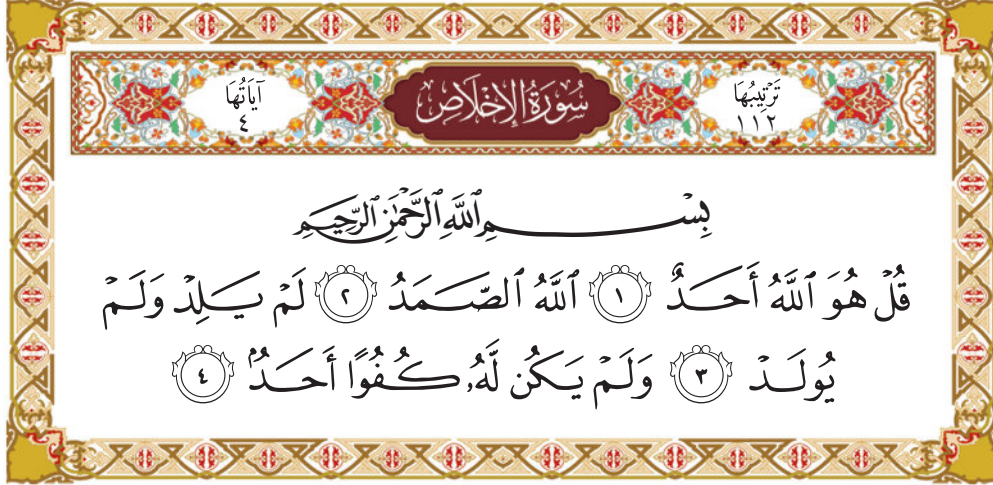 تَرْتِيبُهَا
١١٢
سُورَةُ الْإِخْلَاصِ
آيَاتُهَا
٤
بِسْمِ ٱللَّهِ ٱلرَّحْمَٰنِ ٱلرَّحِيمِ
قُلْ هُوَ ٱللَّهُ أَحَدٌ ١ ٱللَّهُ ٱلصَّمَدُ ٢ لَمْ يَلِدْ وَلَمْ
يُولَدْ ٣ وَلَمْ يَكُن لَّهُۥ كُفُوًا أَحَدٌۢ ٤